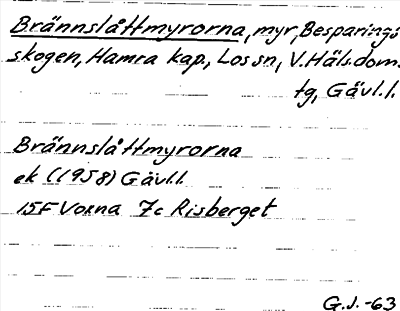 Brännslåttmyrorna, myr, Besparings
skogen, Hamra kap., Los sn, V. Häls. dom.
tg, Gävl. l.
Brännslåttmyrorna
ek (1958) Gävl. l.
15F Voxna 7c Risberget
G.J. -63